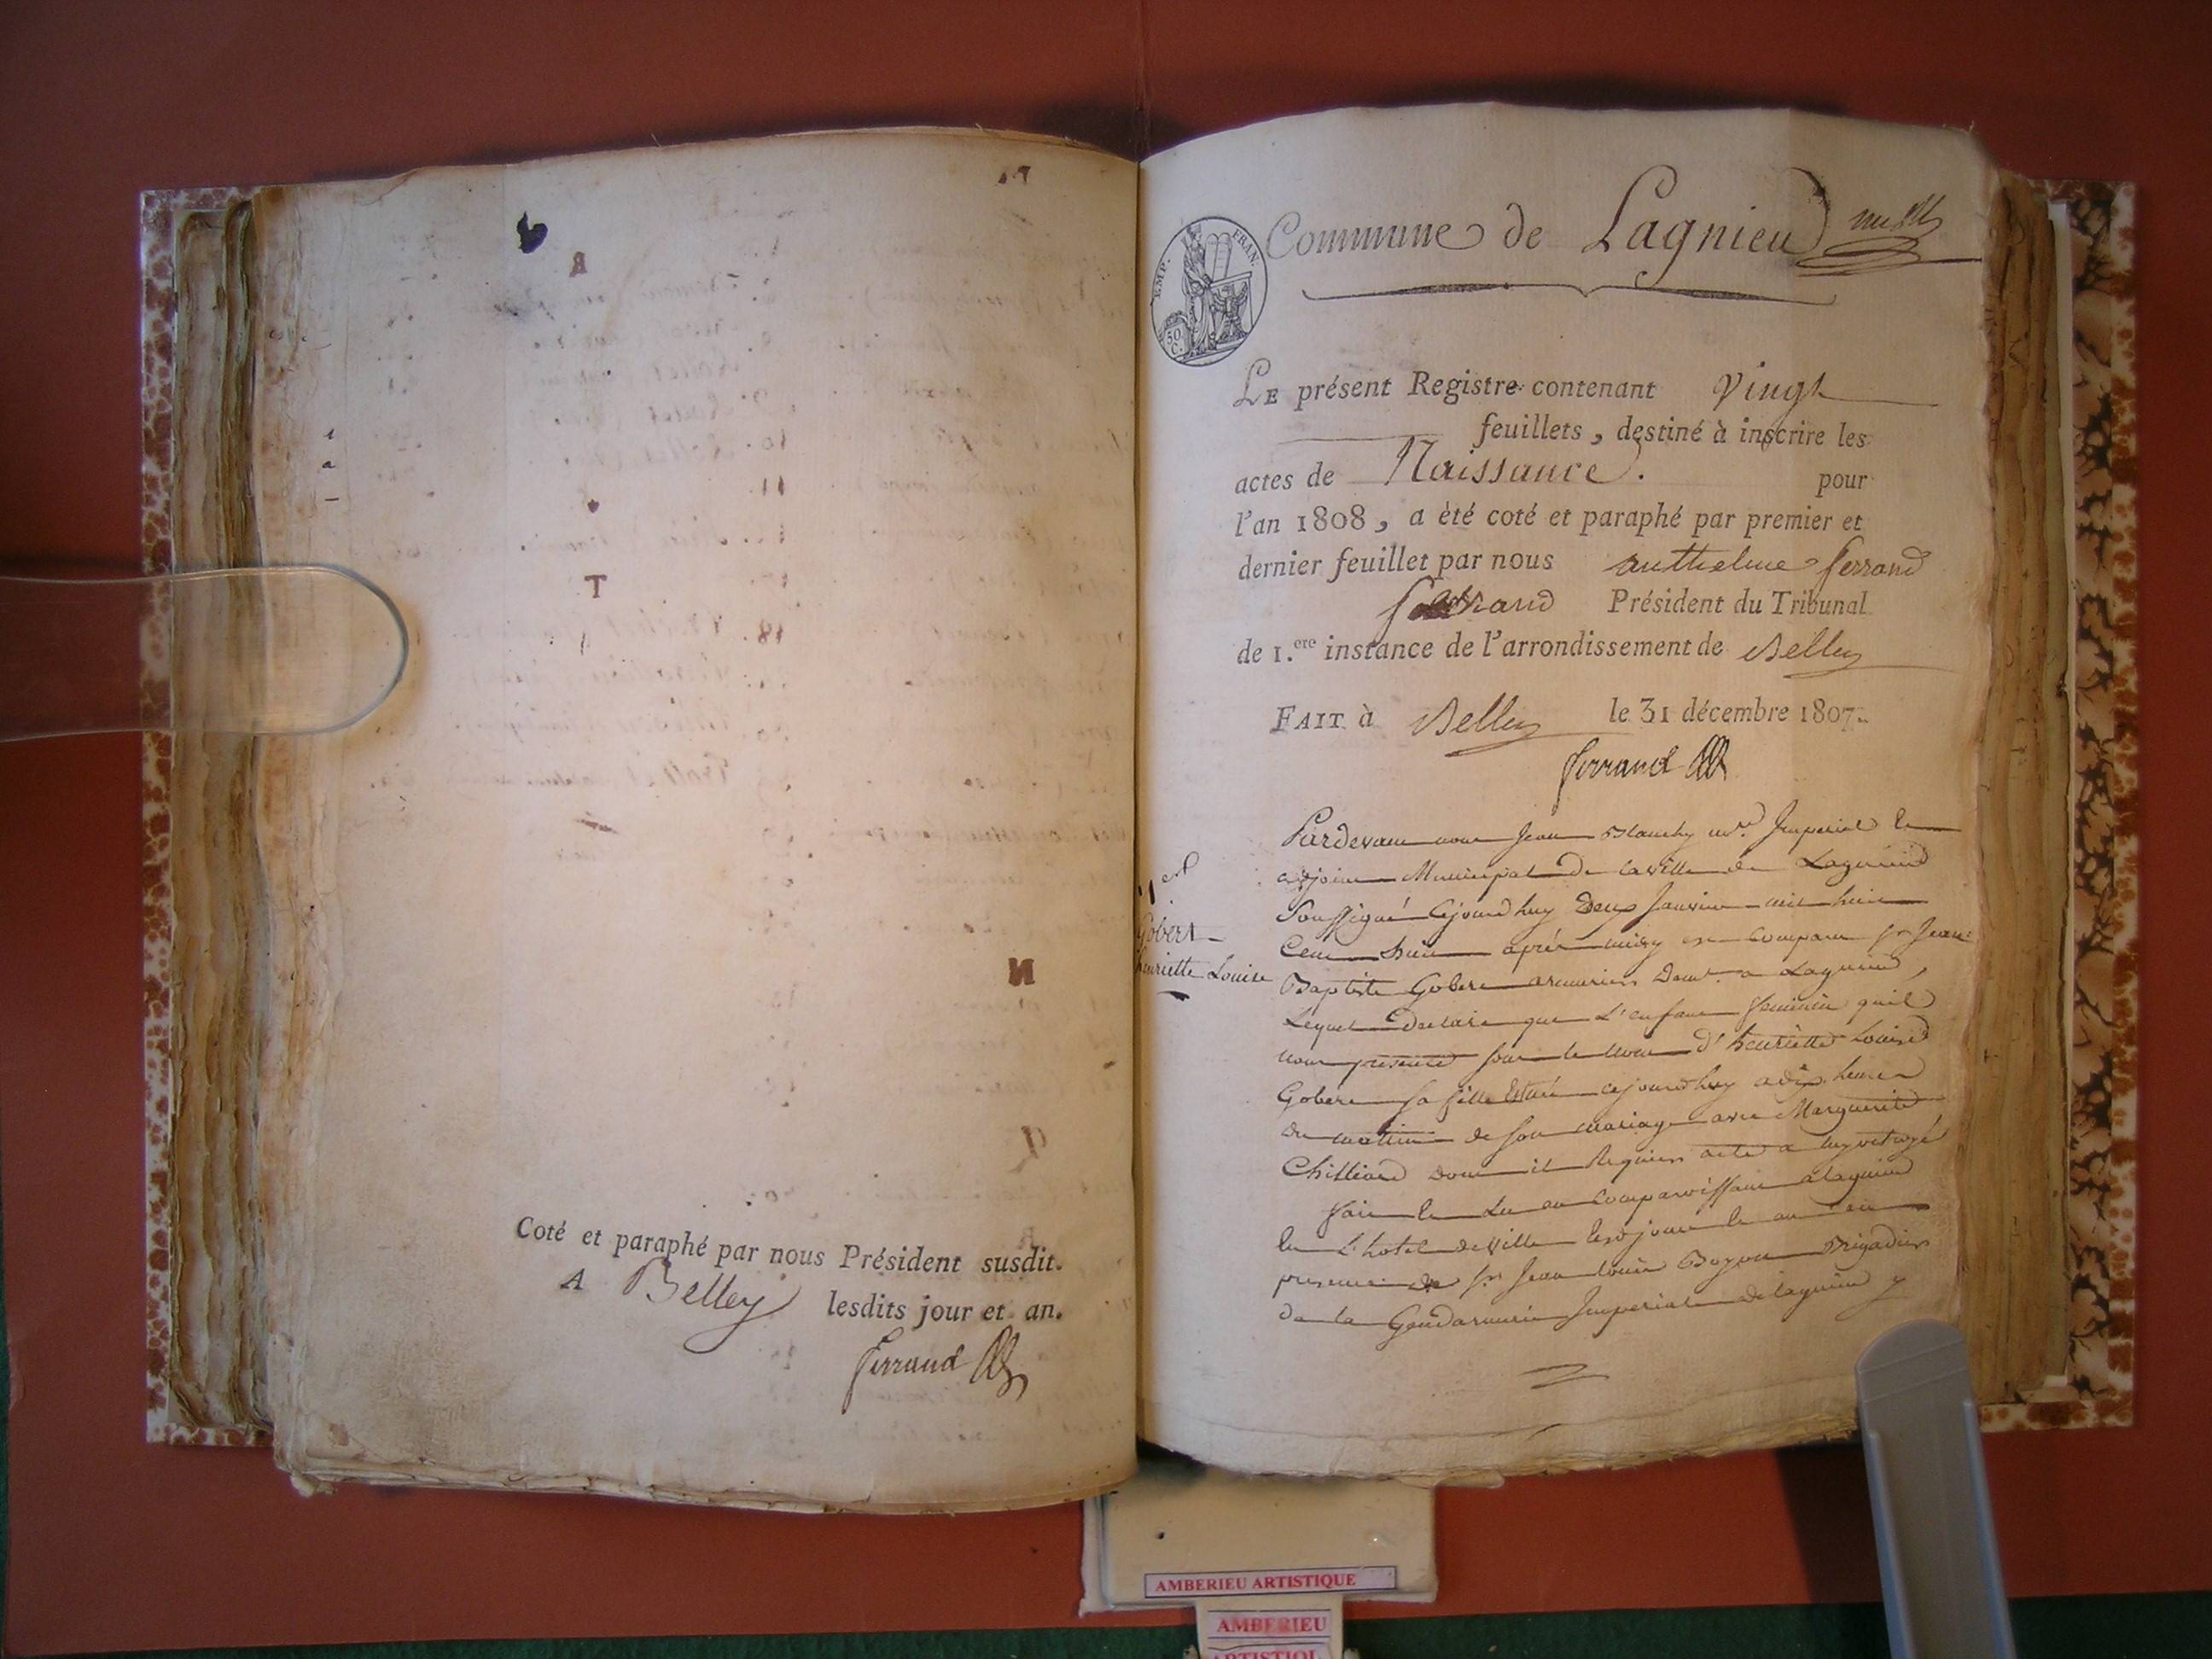 Coté et paraphé par nous Président susdit.
A Belley lesdits jour et an.
Ferrand
Commune de Lagnieu
EMP. FRAN.
50 C.
LE présent Registre contenant Vingt
feuillets, destiné à inscrire les
actes de Naissance. pour
l'an 1808, a été coté et paraphé par premier et
dernier feuillet par nous anthelme ferrand
Président du Tribunal
de 1.ere instance de l'arrondissement de Belley
FAIT à Belley le 31 décembre 1807.
Ferrand
1er
Gobert
henriette Louise
Pardevant nous Jean Blanchy Imperial
adjoint Municipal De la ville de Lagnieu
Soussigné Cejourdhuy Deux Janvier mil huit
Cent huit après midy est comparu Sr Jean
Baptiste Gobert armurier Demt a Lagnieu,
Lequel Declare que L'enfant feminin quil
nous presente sous le nom d'henriette Louise
Gobert sa fille Est née cejourdhuy a dix heures
du matin de son mariage avec Marguerite
Chilliard dont il Requiert acte a luy octroyé
fait et Lu au comparoissant a Lagnieu
en L'hotel de ville lesd jour et an en
presence de Sr Jean Louis Boyon Brigadier
de la Gendarmerie Imperiale de lagnieu
AMBERIEU ARTISTIQUE
AMBERIEU